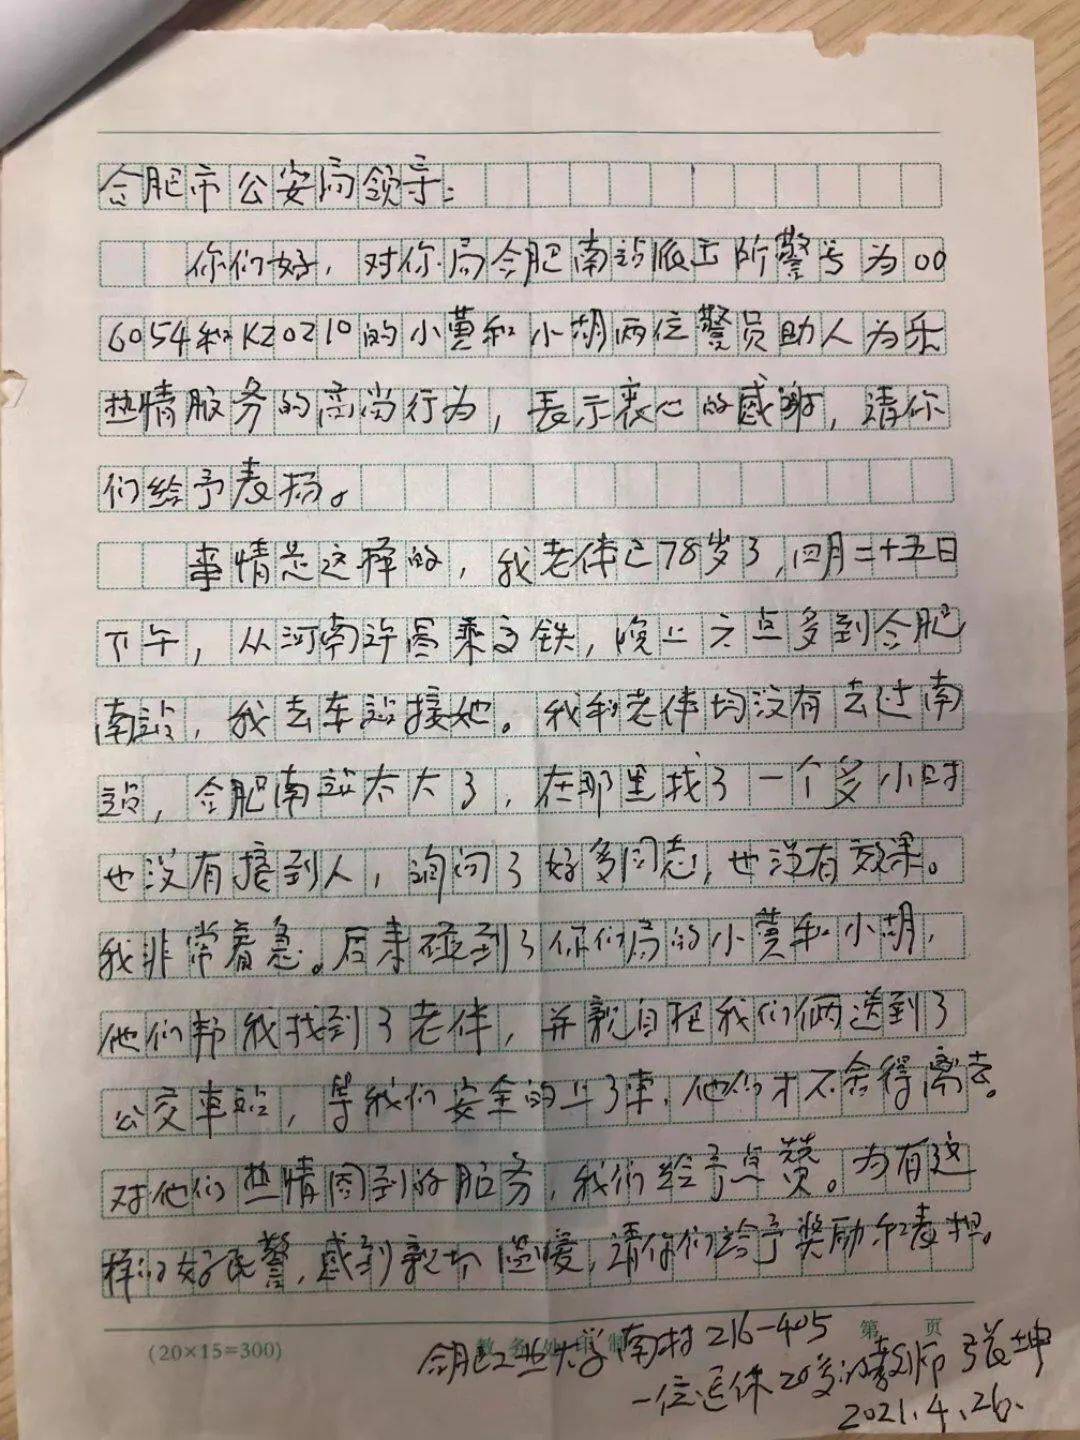 合肥市公安局领导:
你们好，对你局合肥南站派出所警号为00
6054和KZ0210的小黄和小胡两位警员助人为乐
热情服务的高尚行为，表示衷心的感谢，请你
们给予表扬。
事情是这样的，我老伴已78岁了,四月二十五日
下午，从河南许昌乘高铁，晚上六点多到合肥
南站，我去车站接她。我和老伴均没有去过南
站，合肥南站太大了，在那里找了一个多小时
也没有接到人，询问了好多同志，也没有效果。
我非常着急。后来碰到了你们局的小黄和小胡，
他们帮我找到了老伴，并亲自把我们俩送到了
公交车站，等我们安全的上了车，他们才不舍得离去。
对他们热情周到的服务，我们给予点赞。为有这
样的好民警，感到亲切温暖，请你们给予奖励和表扬。
(20×15=300) 教务处印制 第 页
合肥工业大学南村216-405
一位退休20多的教师 张坤
2021.4.26.